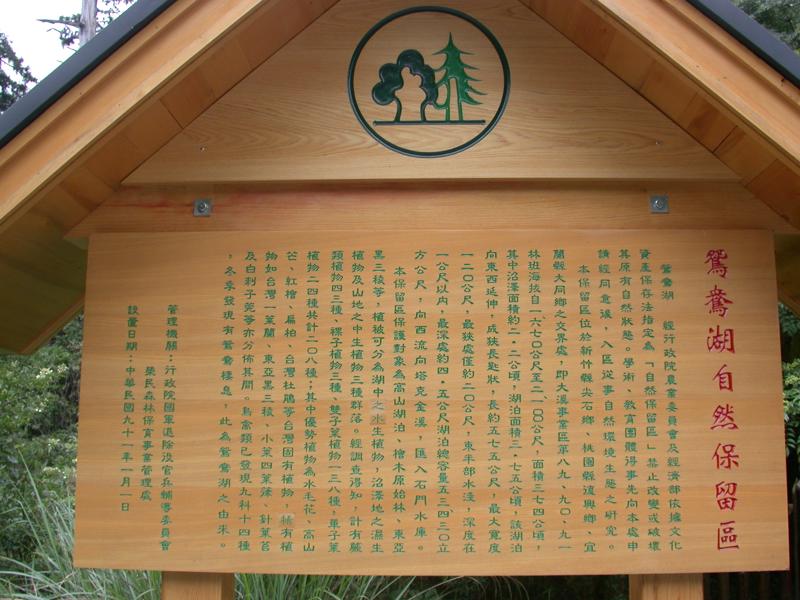 鴛鴦湖自然保留區
鴛鴦湖 經行政院農業委員會及經濟部依據文化
資產保存法指定為「自然保留區」禁止改變或破壞
其原有自然狀態。學術、教育團體得事先向本處申
請經同意後,入區從事自然環境生態之研究。
本保留區位於新竹縣尖石鄉、桃園縣復興鄉、宜
蘭縣大同鄉之交界處,即大溪事業區第八九、九〇、九一
林班海拔自一六七〇公尺至二一〇〇公尺,面積三七四公頃,
其中沼澤面積約二‧二公頃,湖泊面積三‧七五公頃,該湖泊
向東西延伸,成狹長匙狀,長約五七五公尺,最大寬度
一二〇公尺,最狹處僅約二〇公尺,東半部水淺,深度在
一公尺以內,最深處約四‧五公尺湖泊總容量五三四三〇立
方公尺,向西流向塔克金溪,匯入石門水庫。
本保留區保護對象為高山湖泊、檜木原始林、東亞
黑三稜等,植被可分為湖中之水生植物,沼澤地之濕生
植物及山地之中生植物三種群落。經調查得知,計有蕨
類植物四三種、裸子植物三種、雙子葉植物一三八種,單子葉
植物二四種共計二〇八種;其中優勢植物為水毛花、高山
芒、紅檜、扁柏、台灣杜鵑等台灣固有植物,稀有植
物如台灣一葉蘭、東亞黑三稜、小葉四葉葎、針葉苔
及白刺子莞等亦分佈其間。鳥禽類已發現九科十四種
,冬季發現有鴛鴦棲息,此為鴛鴦湖之由來。
管理機關:行政院國軍退除役官兵輔導委員會
榮民森林保育事業管理處
設置日期:中華民國九十一年一月一日